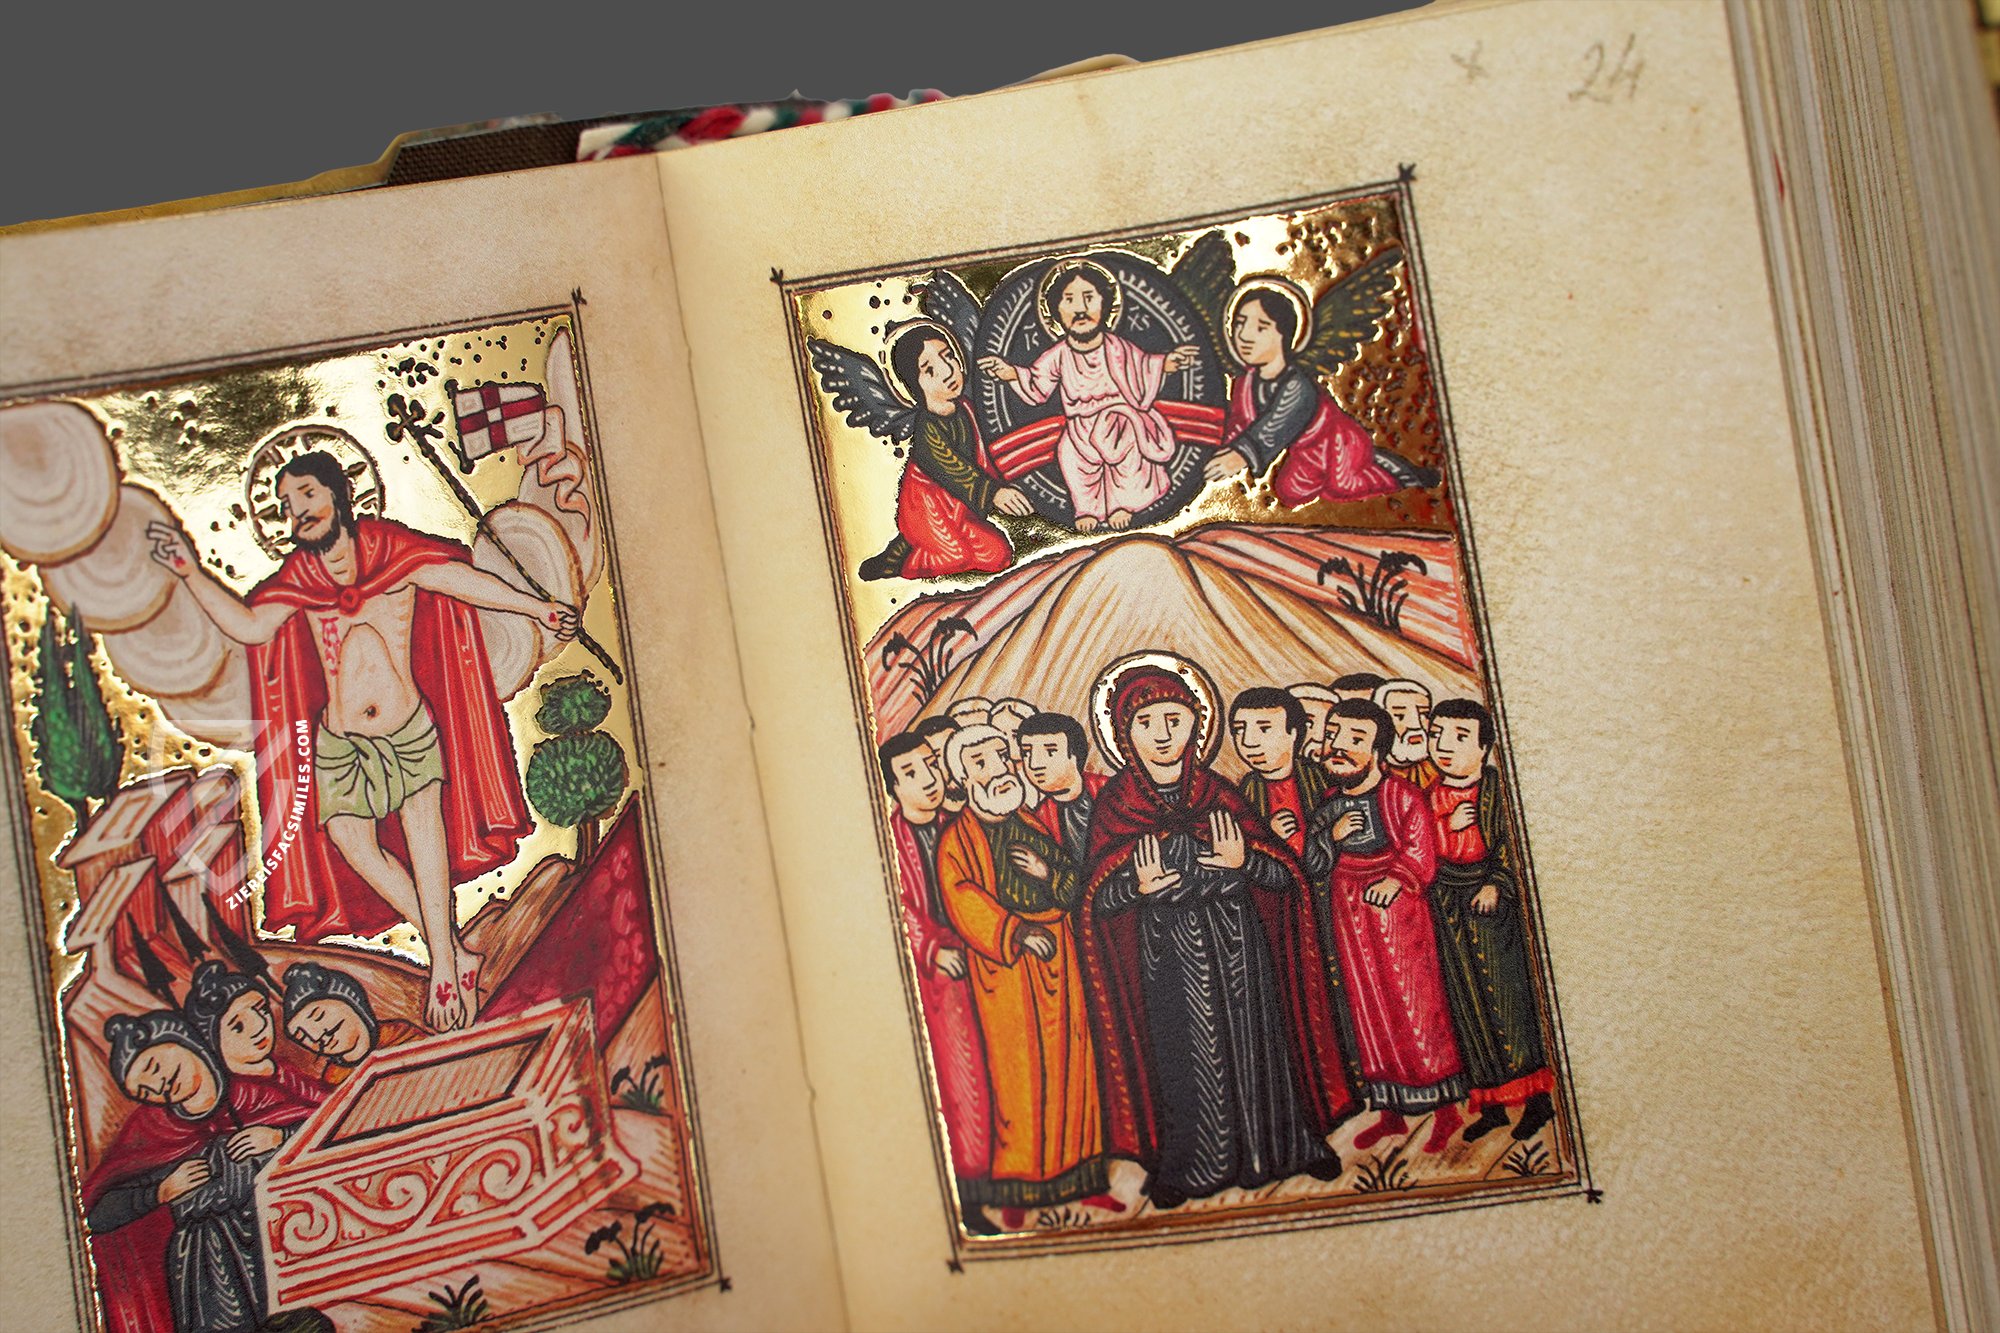 x 24
IC XC
ZIEREISFACSIMILES.COM